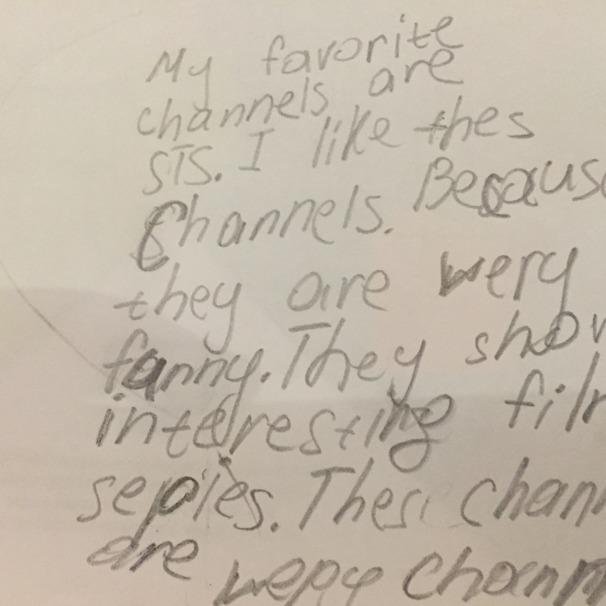 My favorite
channels are
STS. I like thes
Channels. Becaus
they are wery
fanny. They show
interesting film
sepies. Thes chann
are wepy chann